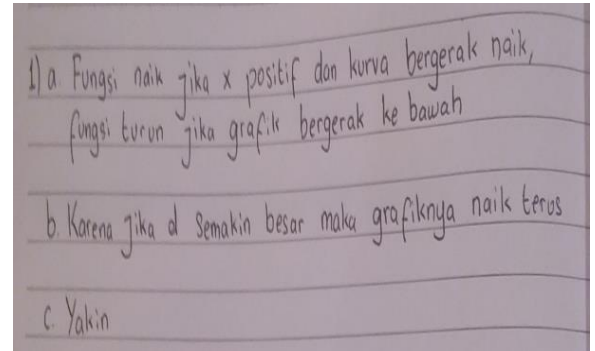 1) a. Fungsi naik jika x positif dan kurva bergerak naik,
fungsi turun jika grafik bergerak ke bawah
b. Karena jika d semakin besar maka grafiknya naik terus
c. Yakin